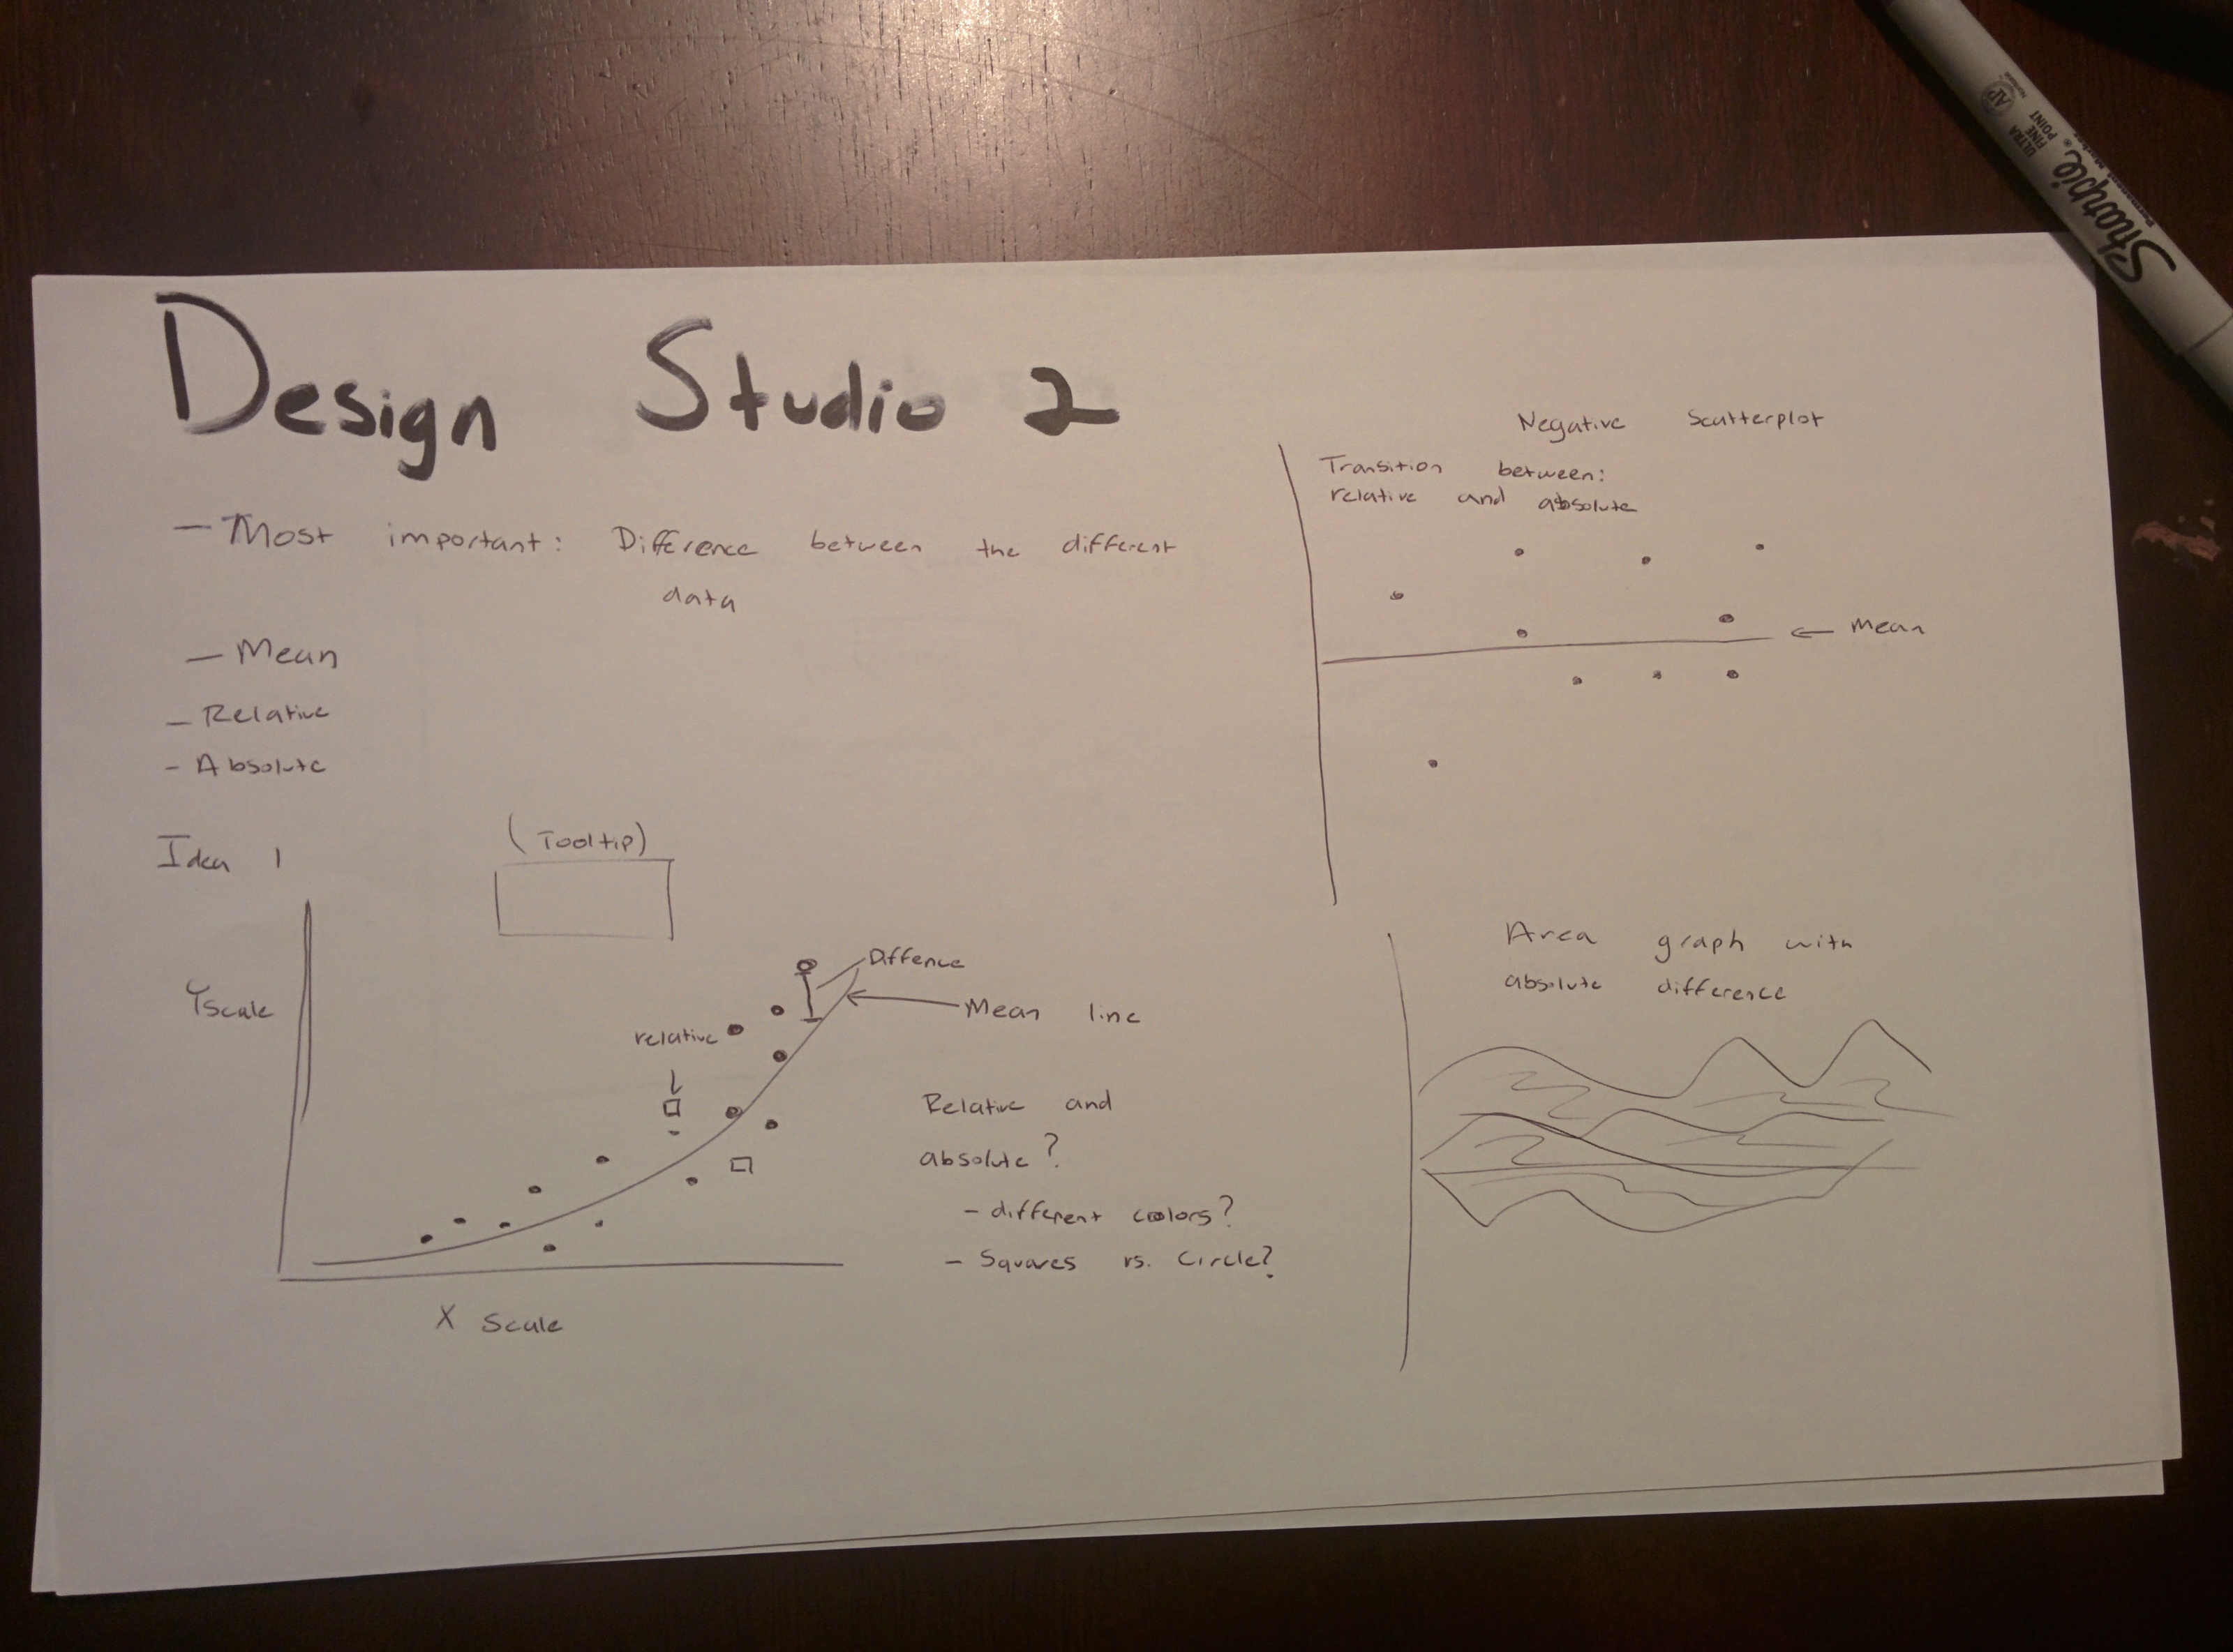 Design Studio 2
— Most important: Difference between the different
data
— Mean
— Relative
- Absolute
Idea 1
(Tooltip)
Yscale
Diffence
Mean line
relative
Relative and
absolute?
- different colors?
- Squares vs. Circle?
X Scale
Negative Scatterplot
Transition between:
relative and absolute
Mean
Area graph with
absolute difference
Sharpie
ULTRA
FINE
POINT
AP